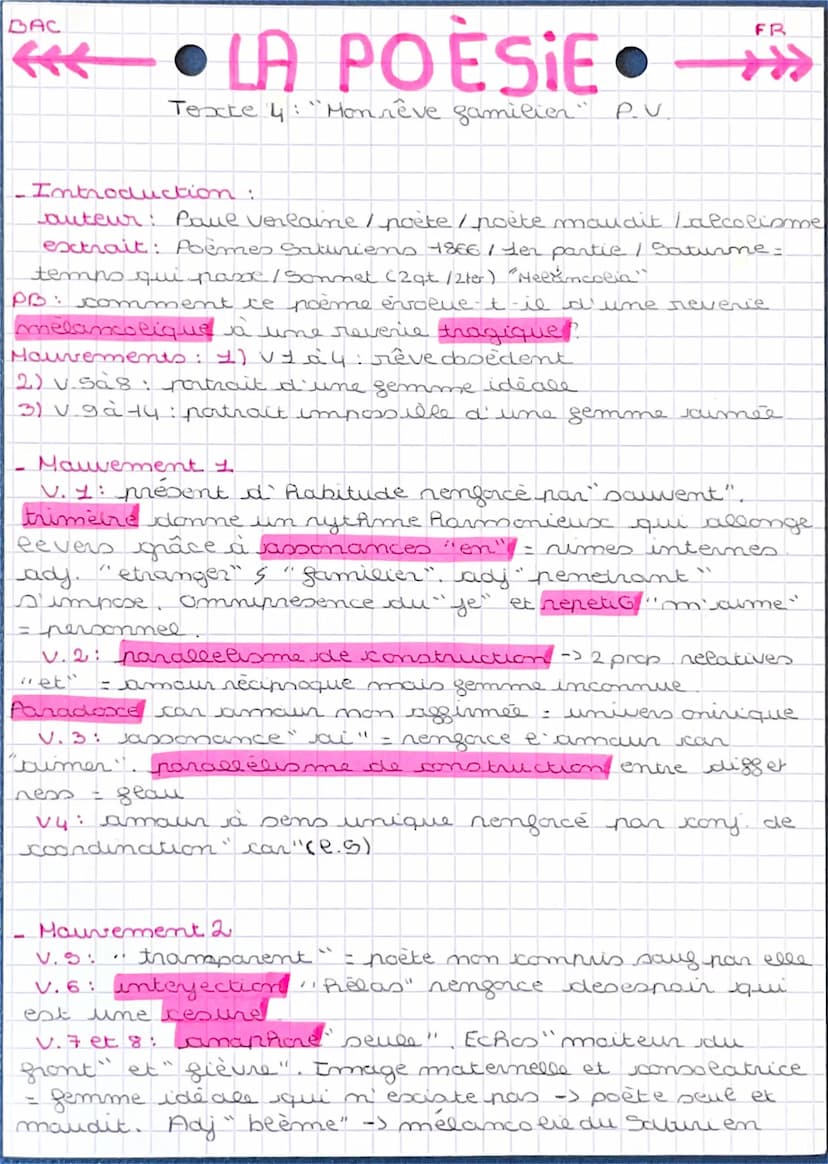 BAC
FR
LA POÈSiE
Texte 4 : "Mon rêve familier" P.V.
- Introduction :
auteur : Paul Verlaine / poète / poète maudit / alcolisme
extrait : Poèmes Saturniens 1866 / 1er partie / Saturne =
temps qui passe / Sonnet (2qt / 2ter) "Melancolia"
PB : comment ce poème évolue-t-il d'une reverie
mélancolique à une reverie tragique ?
Mouvements : 1) V1 à 4 : rêve obsèdent
2) V.5à8 : portrait d'une femme idéale
3) V.9 à 14 : portrait impossible d'une femme aimée
- Mouvement 1
V.1 : présent d'habitude renforcè par "souvent".
trimètre donne un rythme harmonieux qui allonge
le vers grâce à assonances "en" = rimes internes
adj. "etranger" ≠ "familier". adj "penetrant"
s'impose. Omniprésence du "je" et repetit° "m'aime"
= personnel.
V.2 : parallelisme de construction -> 2 prop. relatives
"et" = amour réciproque mais femme inconnue
Paradoxe car amour non affirmée = univers onirique
V.3 : assonance "ai" = renforce l'amour car
"aimer". parallèlisme de construction entre diff et
ress = flou
V4 : amour à sens unique renforcé par conj. de
coordination "car" (l.5)
- Mouvement 2
V.5 : "transparent" = poète non compris sauf par elle
V.6 : interjection "hélas" renforce desespoir qui
est une cesure
V.7 et 8 : anaphore "seule". Echos "moiteur du
front" et "fièvre". Image maternelle et consolatrice
= femme idéale qui n'existe pas -> poète seul et
maudit. Adj "blème" -> mélancolie du Saturien